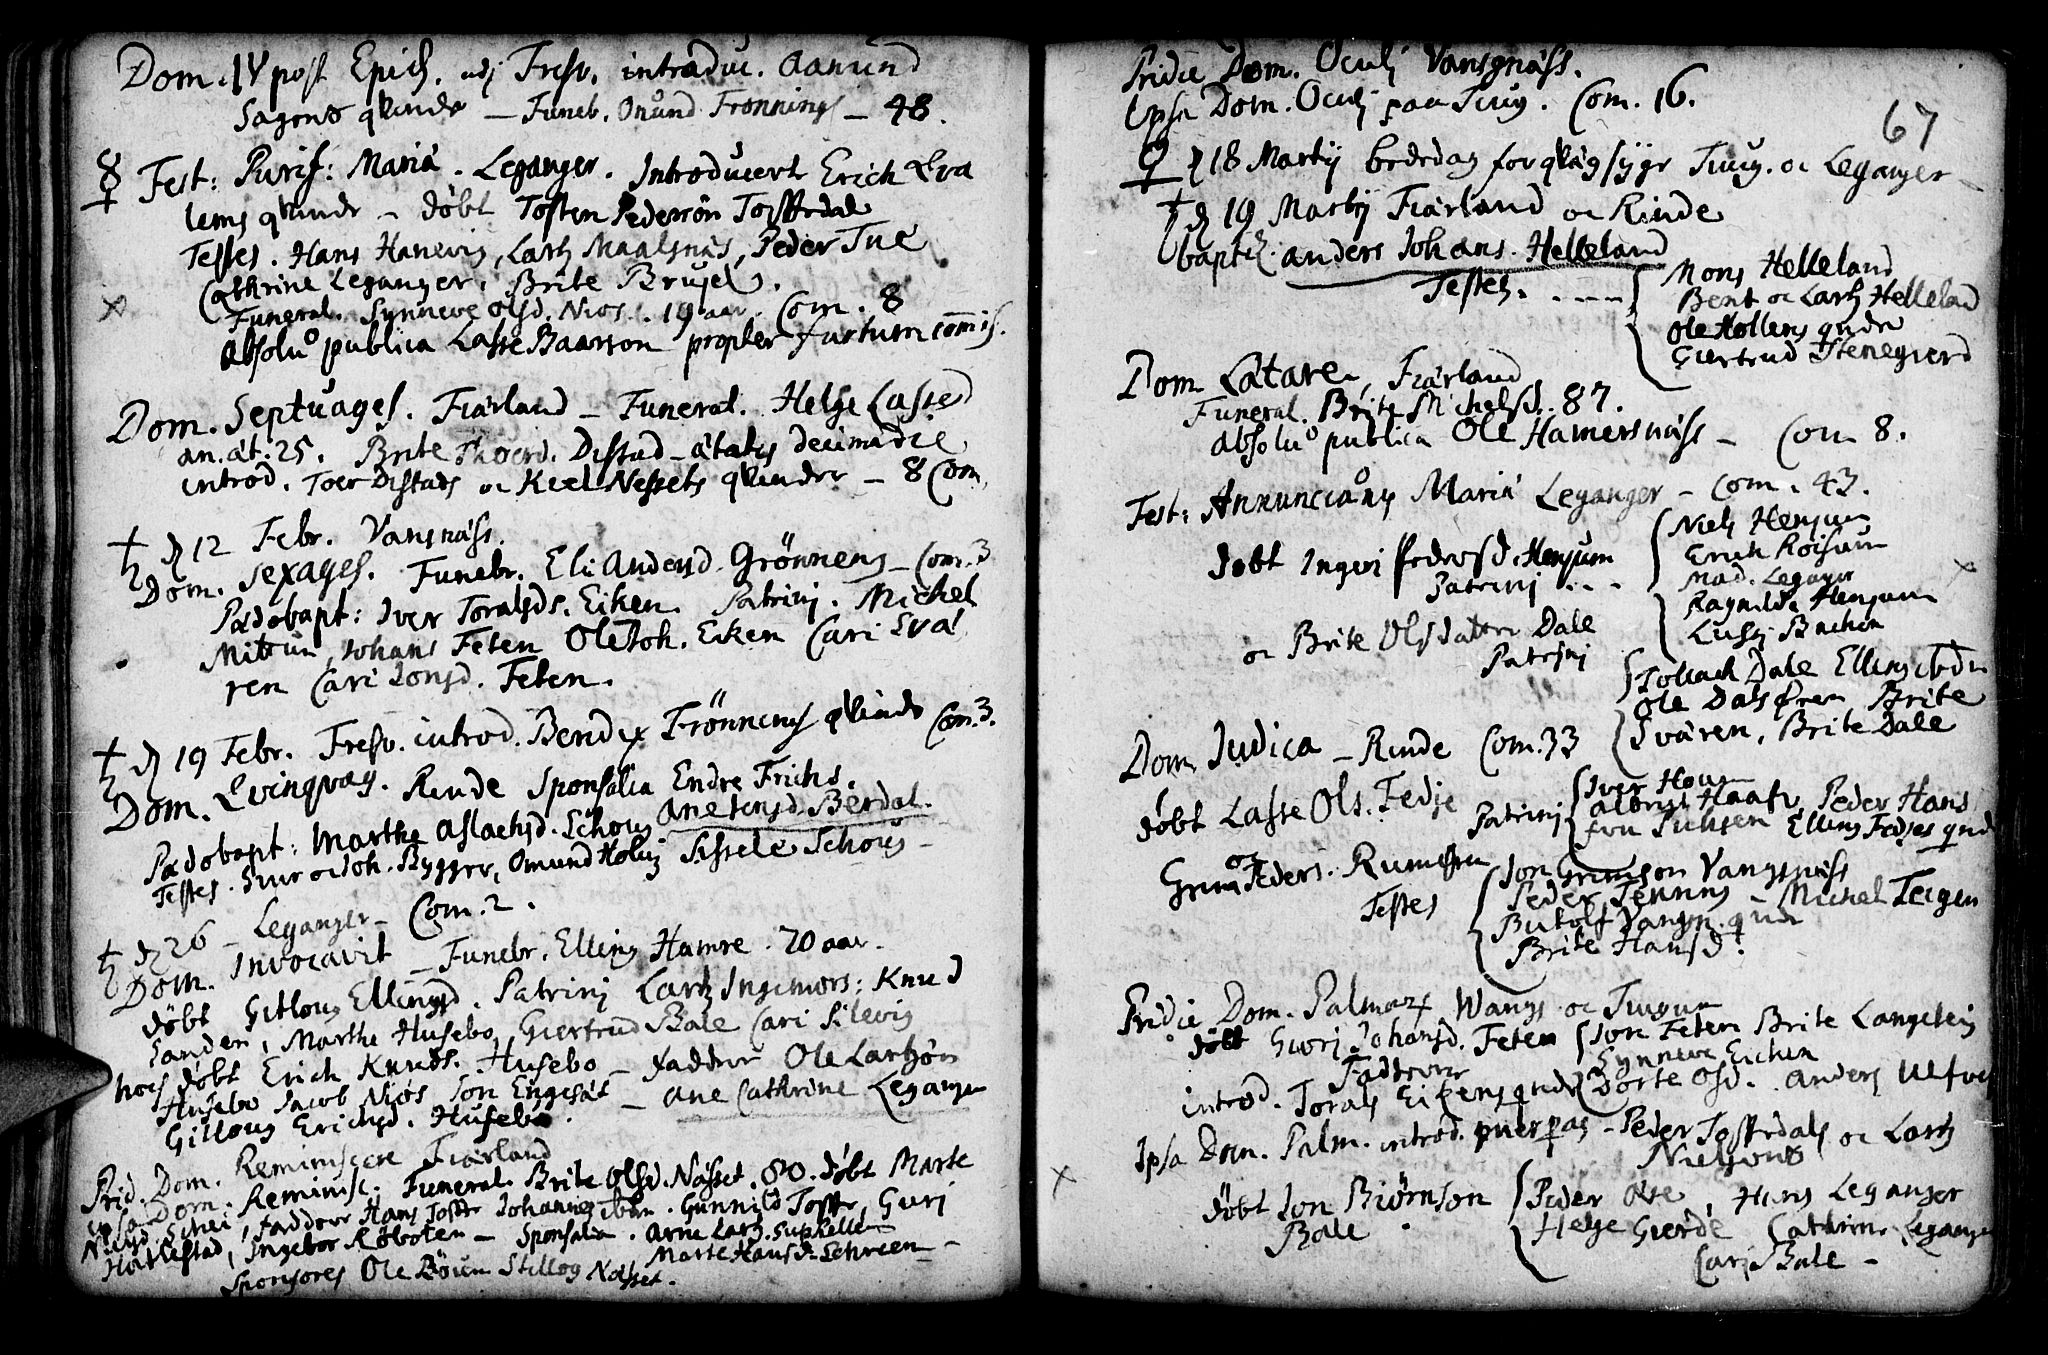 Dom. IV post Epiph. udj Fresv. introduc. Aanund
Sagens qvinde — Funeb. Onund Frønnings — 48.
☿ Fest: Purif: Mariä. Leganger. Introducert Erich Eva
lems qvinde — døbt Tosten Pedersøn Tofftedal
Testes. Hans Hanevig, Lartz Maalsnäs, Peder Tue
Cathrine Leganger, Brite Brusel.
Funeral. Synneve Olsd. Niøs. 19 aar. Com. 8
Absolu^o publica Lasse Baarson propter furtum comis.
Dom. Septuages. Fiärland — Funeral. Helge Lassed
an. ät. 25. Brite Distad — ätatis decimadie
introd. Toer Distads oc Kiel Nessets qvinder — 8 Com.
♄ d 12 Febr. Vangsnäss.
Dom. Sexages. Funebr. Eli Andersd. Grönneng — Com. 3
Pædobapt: Iver Toralsds. Eiken. Patrinj. Michel
Mittun, Johans Feten Ole Joh. Eken Cari Svä
ren Cari Jonsd. Feten.
♄ d 19 Febr. Fresv. introd. Bendix Frönnings qvinde Com. 3.
Dom. Esinqvag. Rinde Sponsalia Endre Frichs.
Ane Jensd. Berdal.
Pædobapt: Marthe Aslachsd. Schou
Testes. Siur oc Joh. Bygger, Omund Holin Sissele Schou —
♄ d 26 — Leganger — Com. 2.
Dom. Invocavit — Funebr. Elling Hamre. 70 aar.
døbt Gitlou Ellingsd. Patrinj Lartz Ingemors: Knud
Sanden, Marthe Husebo, Giertrud Bale Cari Silevig
hoc døbt Erich Knuds. Husebo — faddrer Ole Lartzøn
Husebo Jacob Niøs Jon Engesät — Ane Cathrine Leganger
Gitlou Erichsd. Husebø.
Prid. Dom. Reminiscere Fiärland
ipsa Dom. Reminisc. Funeral. Brite Olsd. Nässet. 80. døbt Marte
Nielsd. Schei, faddrer Hans Toffte Johannes Gunnild Toffte, Guri
Hatlestad, Ingebor Røboten — Sponsalia. Arne Lartz. Suphellen
Marte Hansd. Schreen —
Sponsores Ole Böien Stillog Nässet.
Pridie Dom. Oculj Vangsnäss.
Ipsa Dom. Oculj paa Tiug. Com. 16.
67
♀ d 18 Martij bededag for qvägsyge Tiug. oc Leganger —
♄ d 19 Martij Fiärland oc Rinde
baptz. Anders Johans. Helleland
Testes. . . . . Mons Helleland
Bent oc Lartz Helleland
Ole Hollens qnde
Giertrud Stenegierd
Dom Lätare, Fiärland
Funeral. Brite Michelsd. 87.
Absolu^o publica Ole Hamersnäss — Com 8.
Fest: Annunciaonis Mariä Leganger — Com. 43.
døbt Ingeri Pedersd. Henjum
Patrinj . . . Niels Henjum
Erich Röisum
Mad. Leganger
Ragnilde Henjum
Lussj Bachen
oc Brite Olsdatter Dale
Patrinj
Tollach Dale Elling ibdm
Ole Dalsøren Brite
Svären, Brite Dale
Dom Judica — Rinde Com. 33
døbt Lasse Ols. Fedje Patrinj Iver Houm
Albrigt Haafv, Peder Hans
fru Elling Fedjes qnd
oc
Grim Peders. Rumohren
Testes
Jon Grimson Vangsnäss
Peder Tenning — Michel Teigen
Butolf Vangsn. qnde
Brite Hansd.
Pridie Dom. Palmarum Wangs oc Tiugum
døbt Guorj Johansd. Feten Jon Feten Brite Langeteig
Faddrer Synneve Eichen
introd. Torals Eikens qnde Dorte Osd. Anders
Ipsa Dom. Palm. introd. puerpas — Peder Tofftedals oc Lartz
Nielsøns
døbt Jon Biørnson Peder Hans Leganger
Bale. Helge Gierde Cathrine Leganger
Carj Bale —